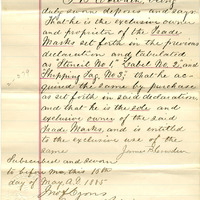 duly sworn deposes and says
That he is the exclusive owner
and proprietor of the Trade
Marks set forth in the previous
declaration and entitled
as "Stencil No. 1" Label No. 2" and
Shipping Tag No 3" that he ac-
quired the same by purchase
as set forth in said declaration
and that he is the sole and
exclusive owner of the said
Trade Marks and is entitled
to the exclusive use of the
same James
Subscribed and sworn
to before me this 13th
day of May A.D. 1885
Lyons